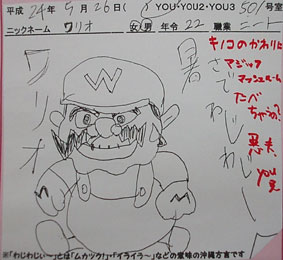 平成 24年 5月 26日( ) YOU・YOU2・YOU3 501号室
ニックネーム ワリオ 女・男 年令 22 職業 ニート
キノコのかわりに
マジック
マッシュルーム
たべ
ちゃうの?
悪夫
you 見
暑さでわじわじー
ワリオ
W
※「わじわじぃ~」とは「ムカツク!」・「イライラ~」などの意味の沖縄方言です